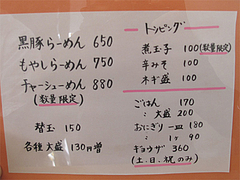 黒豚らーめん 650
もやしらーめん 750
チャーシューめん 880
(数量限定)
替玉 150
各種大盛 130円増
トッピング
煮玉子 100(数量限定)
辛みそ 100
ネギ盛 100
ごはん 170
大盛 200
おにぎり 一皿 180
1ヶ 90
ギョウザ 360
(土、日、祝のみ)